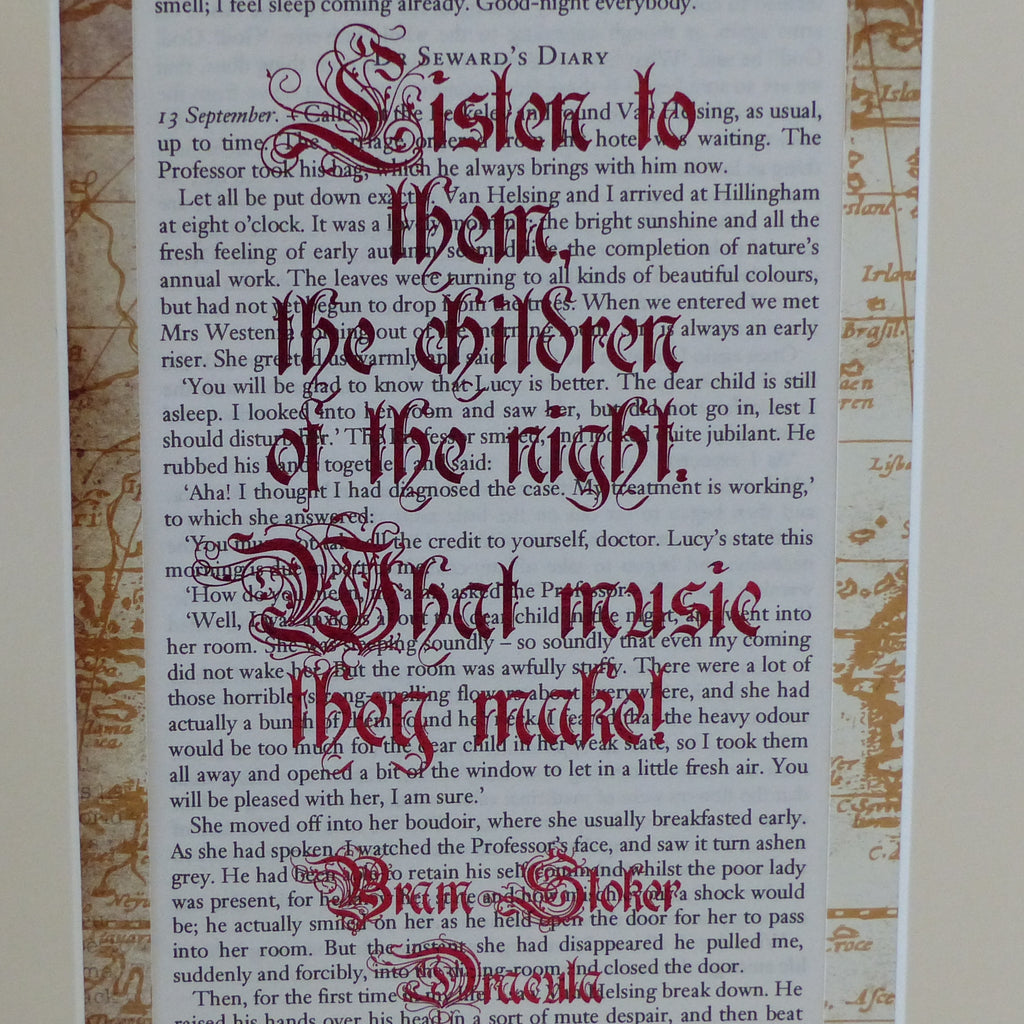 smell; I feel sleep coming already. Good-night everybody.
DR SEWARD'S DIARY
13 September. – Called the Berkeley and found Van Helsing, as usual,
up to time. The carriage ordered from the hotel was waiting. The
Professor took his bag, which he always brings with him now.
Let all be put down exactly. Van Helsing and I arrived at Hillingham
at eight o'clock. It was a lovely morning; the bright sunshine and all the
fresh feeling of early autumn seemed like the completion of nature's
annual work. The leaves were turning to all kinds of beautiful colours,
but had not yet begun to drop from the trees. When we entered we met
Mrs Westenra coming out of the morning is always an early
riser. She greeted us warmly and said:
'You will be glad to know that Lucy is better. The dear child is still
asleep. I looked into her room and saw her, but did not go in, lest I
should disturb her.' The Professor smiled, and looked quite jubilant. He
rubbed his hands together and said:
'Aha! I thought I had diagnosed the case. My treatment is working,'
to which she answered:
'You must not take all the credit to yourself, doctor. Lucy's state this
morning is due in part to me.'
'How do you mean, ma'am?' asked the Professor.
'Well, I was anxious about the dear child in the night, and went into
her room. She was sleeping soundly – so soundly that even my coming
did not wake her. But the room was awfully stuffy. There were a lot of
those horrible, strong-smelling flowers about everywhere, and she had
actually a bunch of them round her neck. I feared that the heavy odour
would be too much for the dear child in her weak state, so I took them
all away and opened a bit of the window to let in a little fresh air. You
will be pleased with her, I am sure.'
She moved off into her boudoir, where she usually breakfasted early.
As she had spoken, I watched the Professor's face, and saw it turn ashen
grey. He had been able to retain his self-command whilst the poor lady
was present, for he her state and how a shock would
be; he actually smiled on her as he held open the door for her to pass
into her room. But the instant she had disappeared he pulled me,
suddenly and forcibly, into the dining-room and closed the door.
Then, for the first time in my life, I saw Van Helsing break down. He
raised his hands over his head in a sort of mute despair, and then beat
Listen to
them,
the children
of the night.
What music
they make!
Bram Stoker
Dracula
Irlan
Brasil.
roce